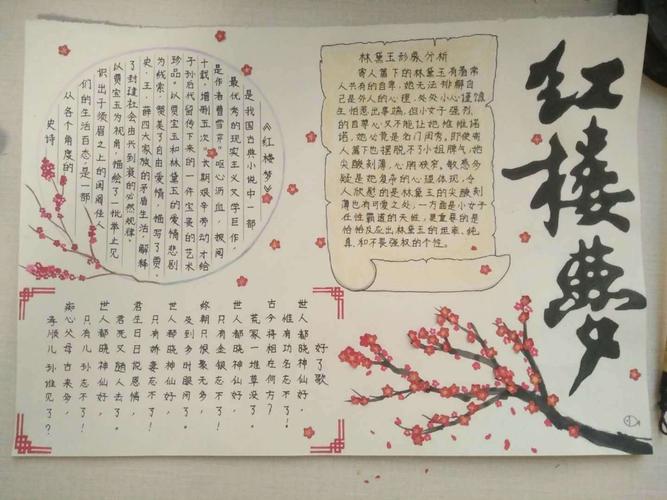 红楼梦
林黛玉形象分析
寄人篱下的林黛玉有着常
人共有的自卑,她无法排解自
己是外人的心理,处处小心谨慎
生怕惹出事端,但小女子强烈
的自尊心又不能让她唯唯诺
诺,她必竟是名门闺秀,即使寄
人篱下也摆脱不了小姐脾气,她
尖酸刻薄,心胸狭窄。敏感多
疑是她复杂的心理体现,令
人欣慰的是林黛玉的尖酸刻
薄也有可爱之处,一方面是小女子
在性霸道的天性,更重要的是
恰恰反应出林黛玉的坦率,纯
真,和不畏强权的个性。
《红楼梦》
是我国古典小说中一部
最优秀的现实主义文学巨作,
是作者曹雪芹“呕心沥血,披阅
十载,增删五次”长期艰辛劳动才给
子孙后代留传下来的一件宝贵的艺术
珍品。以贾宝玉和林黛玉的爱情悲剧
为线索,赞美了自由爱情,描写了贾、
史、王、薛四大家族的矛盾生活,解释
了封建社会由兴到衰的必然规律。
以贾宝玉为视角,描绘了一批举止见
识出于须眉之上的闺阁佳人
们的生活百态,是一部
从各个角度的
史诗
好了歌
世人都晓神仙好,
惟有功名忘不了!
古今将相在何方?
荒冢一堆草没了。
世人都晓神仙好,
只有金银忘不了!
终朝只恨聚无多,
及到多时眼闭了。
世人都晓神仙好,
只有娇妻忘不了!
君生日日说恩情,
君死又随人去了。
世人都晓神仙好,
只有儿孙忘不了!
痴心父母古来多,
孝顺儿孙谁见了?